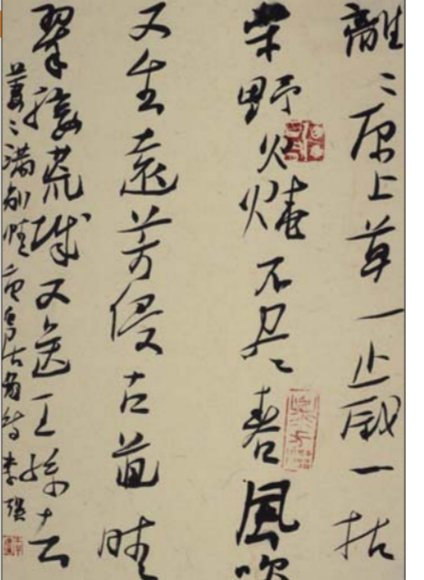 離々原上草一歲一枯
榮野火燒不盡春風吹
又生遠芳侵古道晴
翠接荒城又送王孫去
萋々滿別情 李強